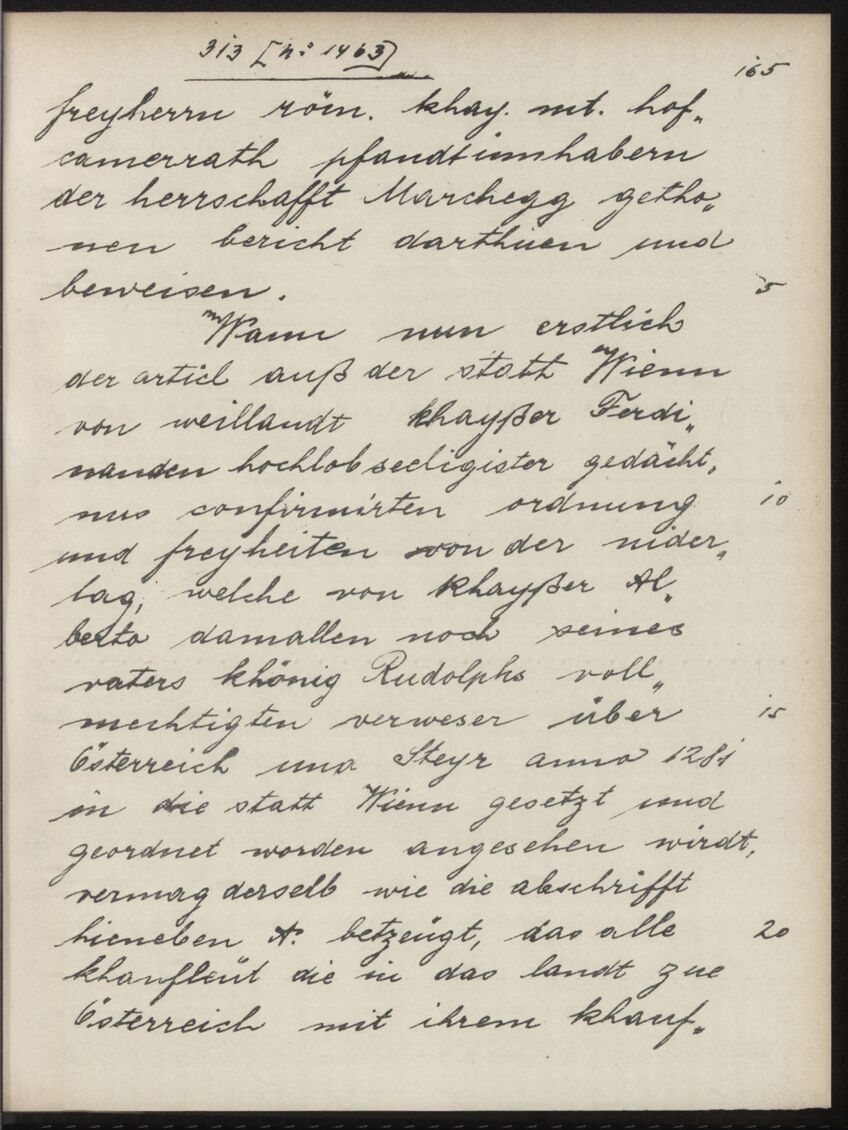 313 [nº 1463]
165
freyherrn röm. khay. mt. hof„
camerrath pfandtinnhabern
der herrschafft Marchegg getho„
nen bericht darthuen und
beweisen. 5
Wann nun erstlich
der articl auß der statt Wienn
von weillandt khayßer Ferdi„
nanden hochlobseeligister gedächt„
nus confirmirten ordnung 10
und freyheiten von der nider„
lag, welche von khayßer Al„
berto damallen noch seines
vaters khönig Rudolphs voll„
mechtigten verweser über 15
Österreich und Steyr anno 1281
in die statt Wienn gesetzt und
geordnet worden angesehen wirdt,
vermag derselb wie die abschrifft
hieneben A. betzeügt, das alle 20
khaufleüt die in das landt zue
Österreich mit ihrem khauf„